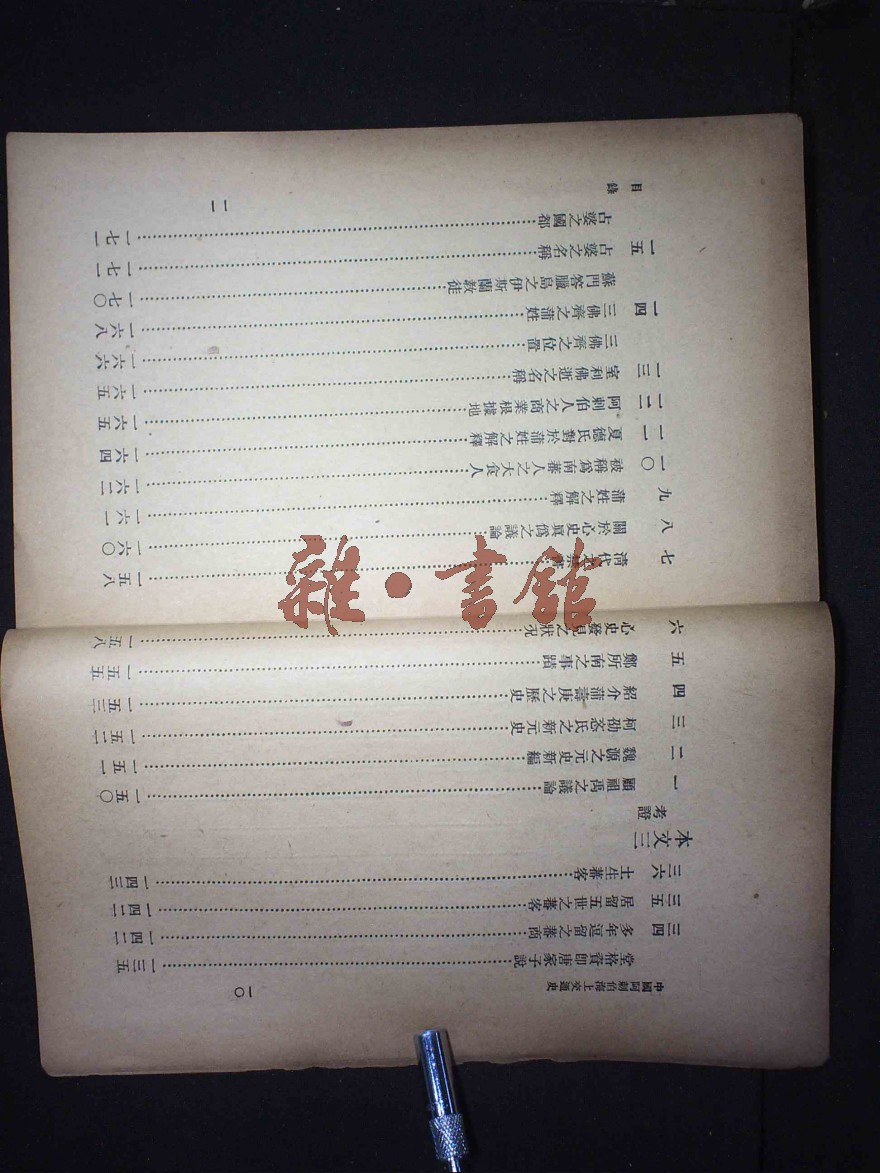 中國阿剌伯海上交通史
一〇
堂格資卽唐家子說……一三五
三四 多年逗留之蕃商……一四二
三五 居留五世之蕃客……一四二
三六 土生蕃客……一四三
本文三
考證
一 顧祖禹之議論……一五〇
二 魏源之元史新編……一五一
三 柯劭忞氏之新元史……一五二
四 紹介蒲壽庚之歷史……一五三
五 鄭所南之事蹟……一五五
六 心史發見之狀況……一五八
七 清代……一五八
八 關於心史真僞之議論……一六〇
九 蒲姓之解釋……一六一
一〇 被稱爲南蕃人之大食人……一六二
一一 夏德氏對於蒲姓之解釋……一六四
一二 阿剌伯人之商業根據地……一六五
一三 室利佛逝之名稱……一六五
三佛齊之位置……一六六
一四 三佛齊之蒲姓……一六八
蘇門答臘島之伊斯蘭敎徒……一七〇
一五 占婆之名稱……一七一
占婆之國都……一七一
目錄
一一
雜·書館